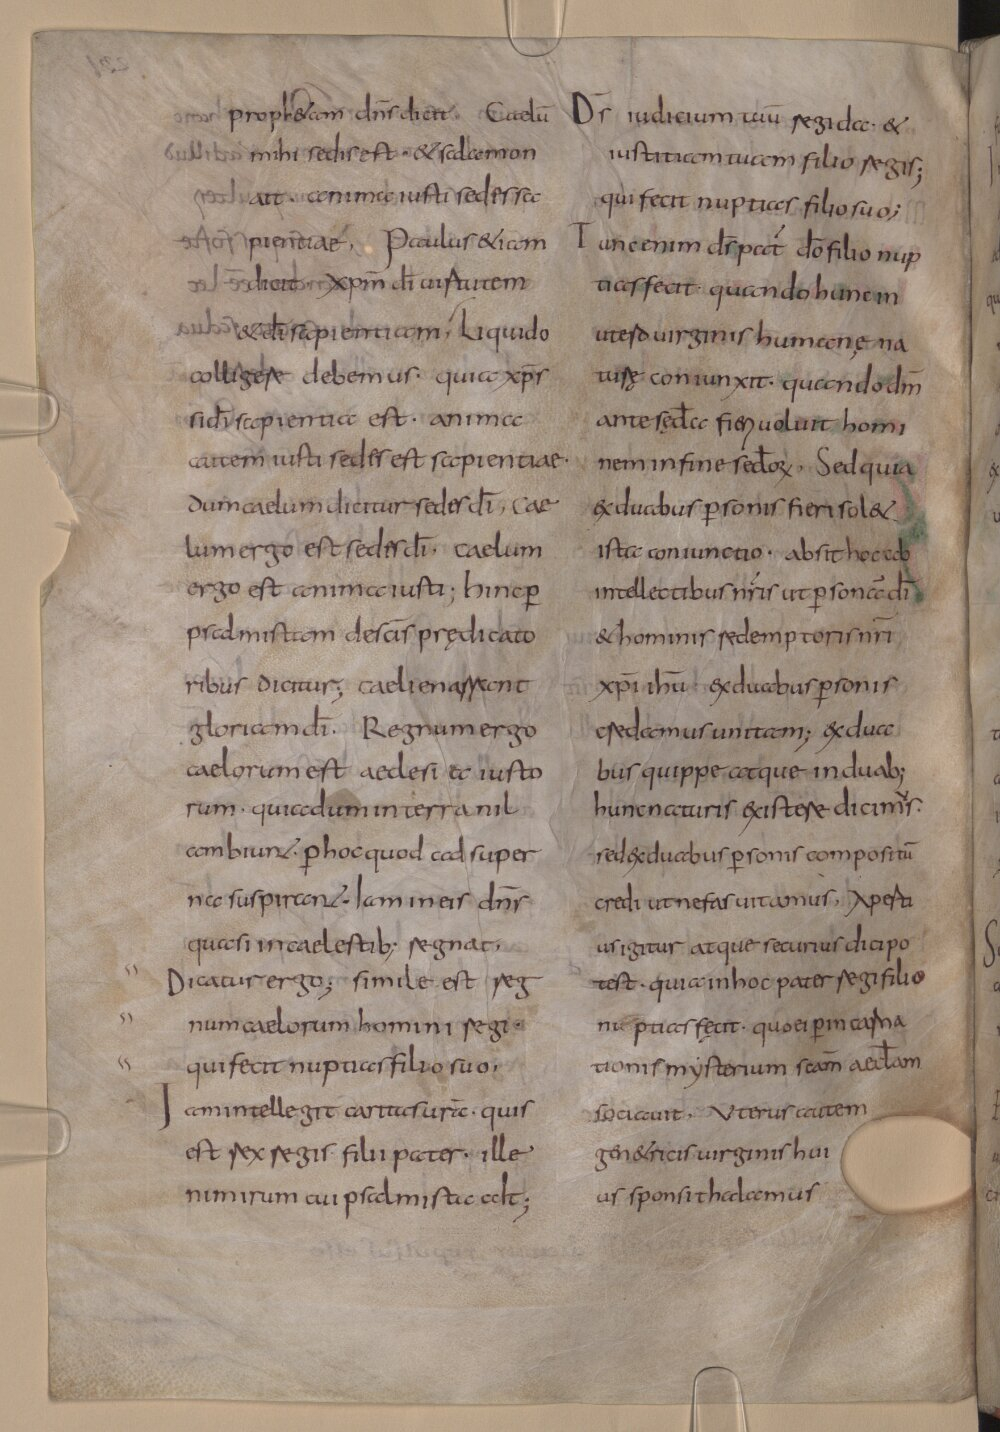 proph&am dn̄s dicit. Caelū
mihi sedis est · & salomon
ait · anima iusti sedes sa
pientiae, Paulus &iam
dicit xp̄m dī uirtutem
& dī sapientiam, Liquido
colligere debemus · quia xp̄s
si dī sapientia est · anima
autem iusti sedes est sapientiae ·
dum caelum dicitur sedes dī, cae
lum ergo est sedes dī, caelum
ergo est anima iusti; hinc ꝑ
psalmistam de scīs prędicato
ribus dicitur; caeli enarrant
gloriam dī. Regnum ergo
caelorum est aeclesia iusto
rum · quia dum in terra nil
ambiunt · ꝑ hoc quod ad super
na suspirant · Iam in eis dn̄s
quasi in caelestib; regnat,
Dicatur ergo; simile est reg
num caelorum homini regi ·
qui fecit nuptias filio suo,
Iam intellegit caritas urā · quis
est rex regis filii pater · ille
nimirum cui psalmista ait;
Dī iudicium tuū regi da · &
iustitiam tuam filio regis;
qui fecit nuptias filio suo;
Tunc enim dī pat dō filio nup
tias fecit · quando hunc in
utero uirginis humanę na
turę coniunxit · quando dm̄
ante secła fieri uoluit homi
nem in fine secłoꝝ, Sed quia
ex duabus ꝑsonis fieri sol&
ista coniunctio · absit hoc ab
intellectibus nr̄is ut ꝑsonā dī
& hominis redemptoris nr̄i
xp̄i ihū · ex duabus ꝑsonis
credamus unitam; ex dua
bus quippe atque in duab;
hunc naturis existere dicim's ·
sed ex duabus ꝑsonis compositū
credi ut nefas uitamus, Aperti
us igitur atque securius dici po
test · quia in hoc pater regi filio
nuptias fecit · quo ei ꝑ incarna
tionis mysterium scām aecłam
sociauit, Uterus autem
gen&ricis uirginis hui
us sponsi thalamus